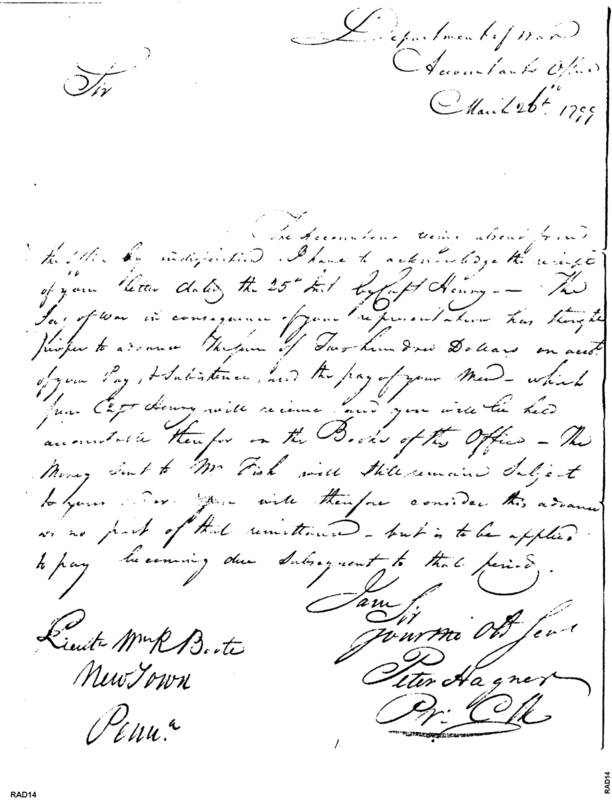 Department of War
Accountants Office
March 26th. 1799
Sir
The Accountant being absent from
the Office by indisposition I have to acknowledge the receipt
of your letter dated the 25th Inst by Capt Henry — The
Sec. of War in consequence of your representation has thought
proper to advance the sum of Two hundred Dollars on acct.
of your Pay, & Subsistence, and the pay of your Men — which
sum Capt Henry will receive and you will be held
accountable therefor on the Books of this Office — The
Money sent to Mr Fish will still remain Subject
to your order. You will therefore consider this advance
as no part of that remittance — but is to be applied
to pay becoming due Subsequent to that period.
I am Sir
your mo Obt Serv
Peter Hagner
Pr: Clk
Lieuts Wm R Boote
New Town
Penna.
RAD14
RAD14